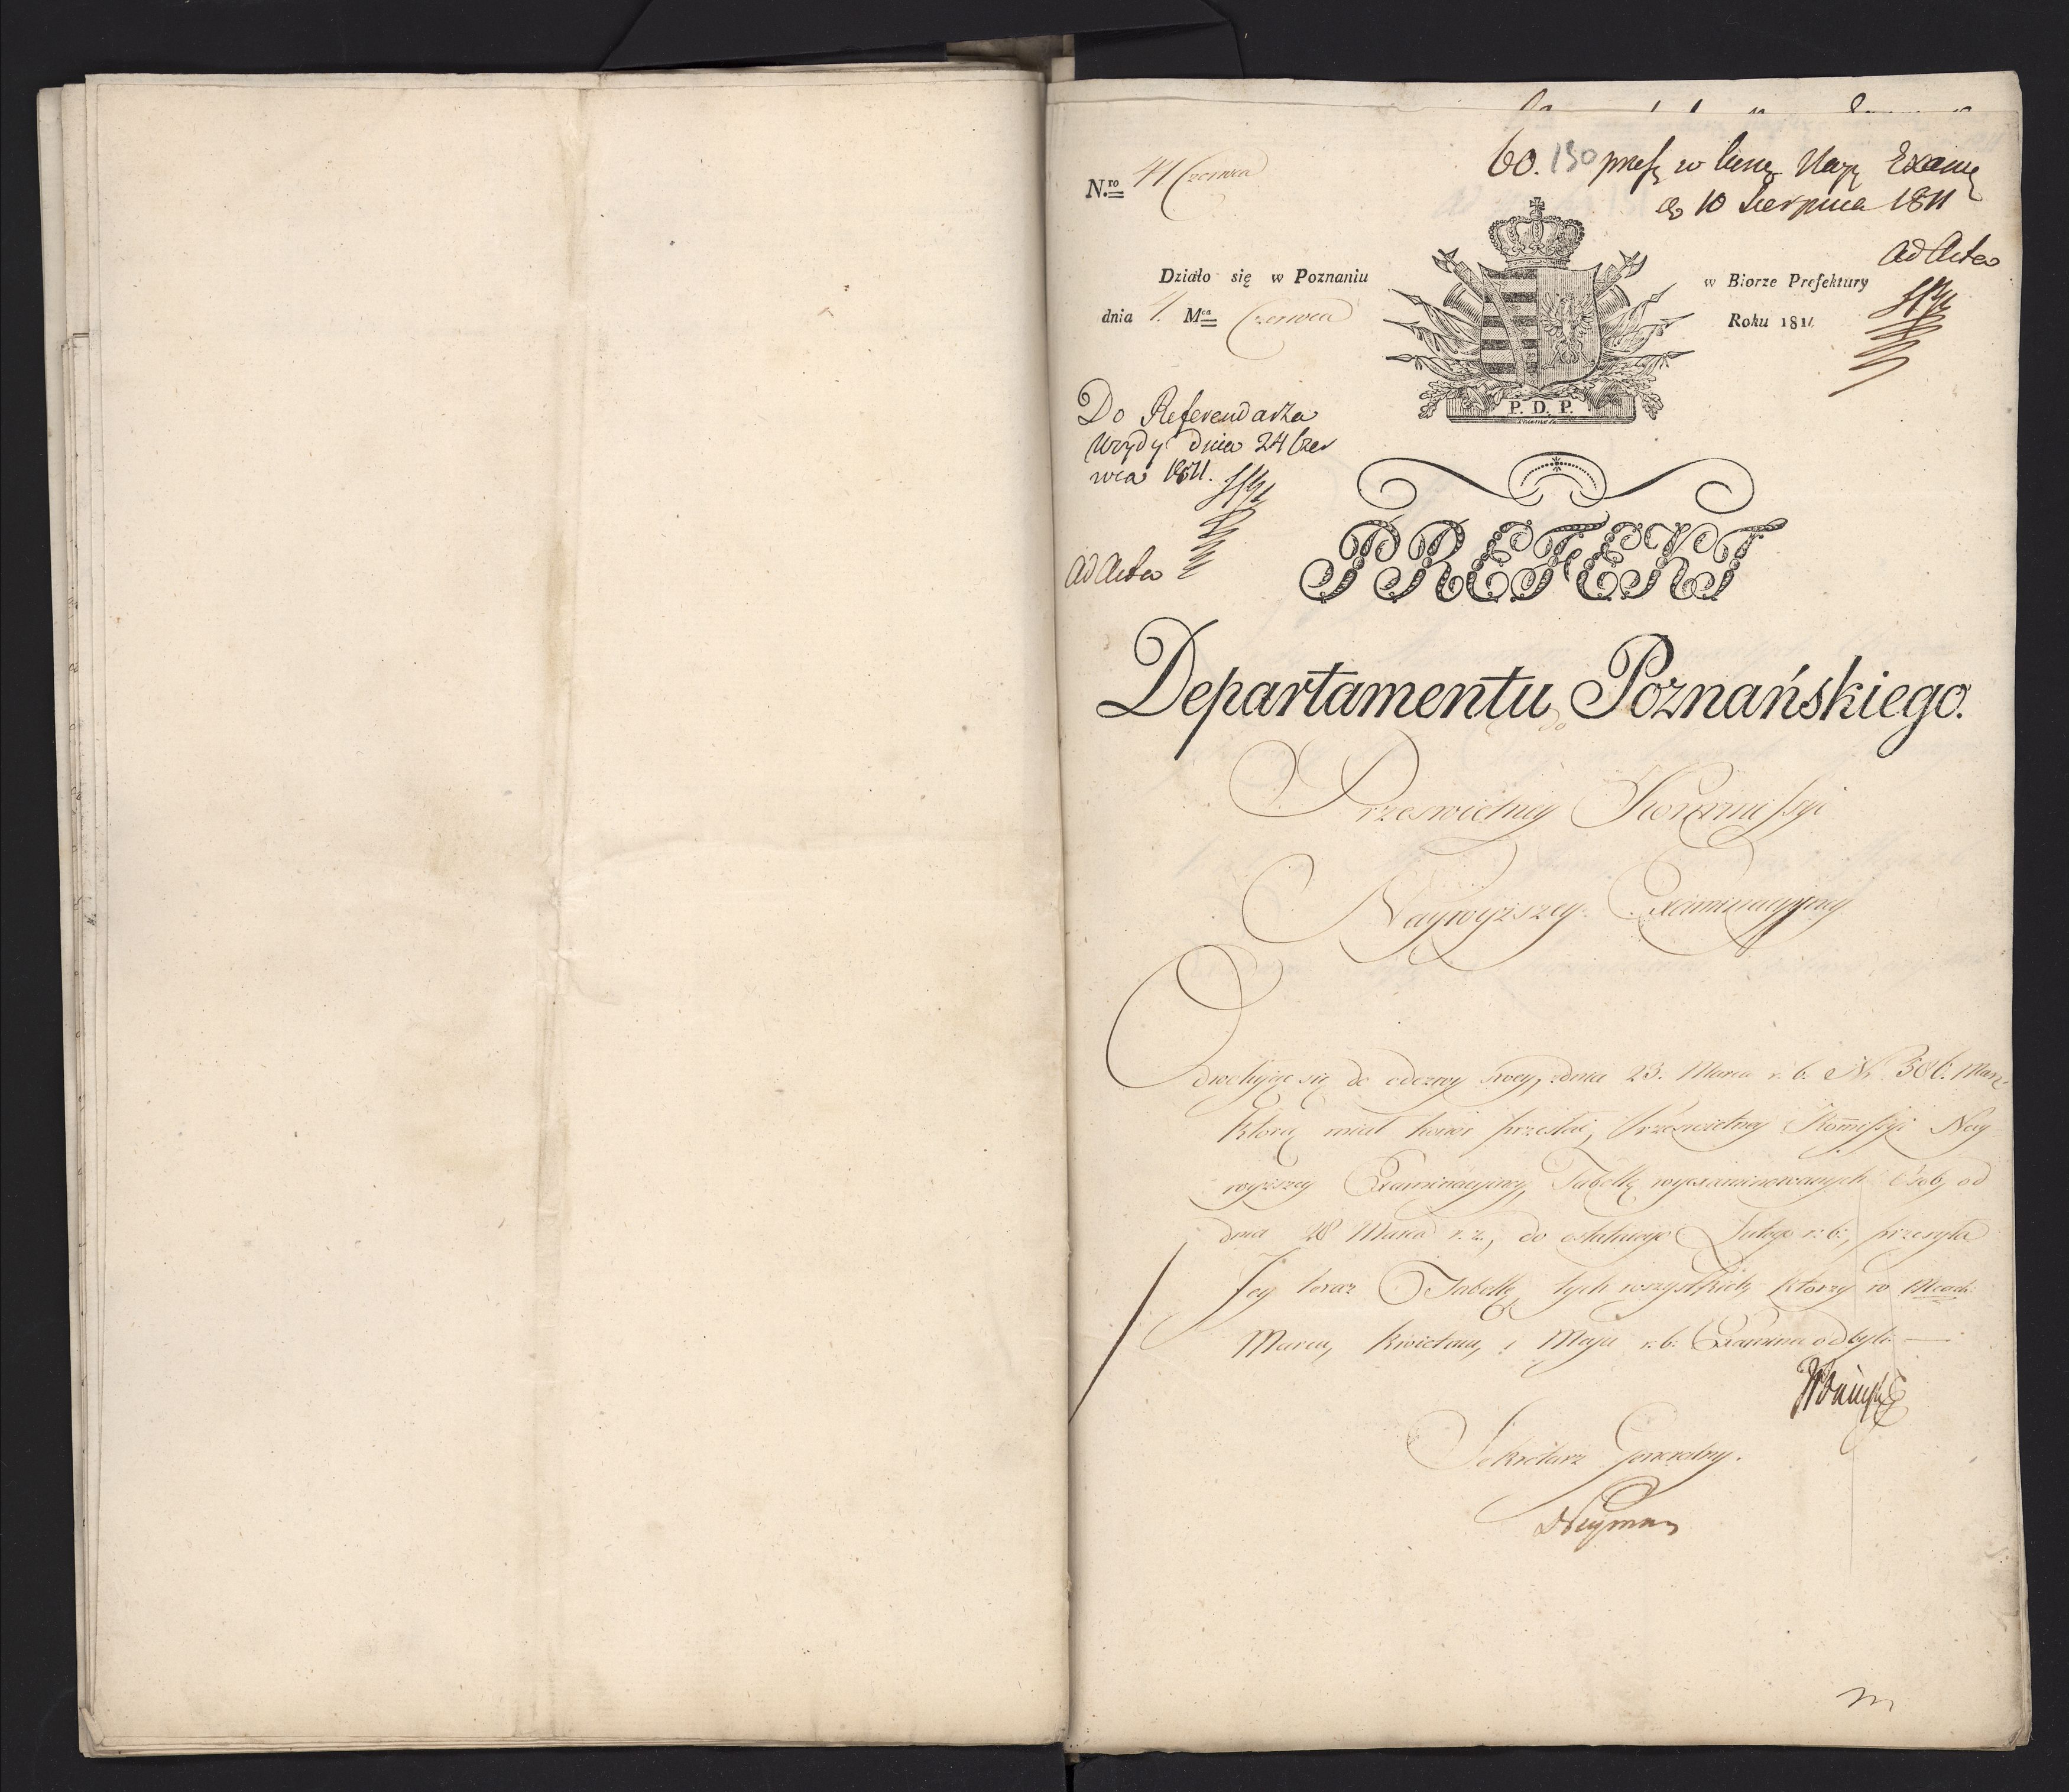 60. 130
10 Sierpnia 1811
N.ro 41 Czerwca
ad Acta
Działo się w Poznaniu
w Biorze Prefektury
dnia 1. Mca Czerwca
Roku 1811
P. D. P.
Do Referendarza
dnia 24 Czer
wca 1811.
ad Acta
PREFEKT
Departamentu Poznańskiego.
do
Prześwietney Kommissyi
Naywyższey Examinacyjney
Odwołując się do odezwy swey, z dnia 23. Marca r. b. Nr 386. Marca
którą miał honor przesłać, Prześwietney Kommissyi Nay
wyższey Examinacyiney, Tabellę wyexaminowanych Osob, od
dnia 28 Marca r. z., do ostatniego Lutego r: b:, przesyła
Jey teraz Tabellę tych wszystkich którzy w Mcach
Marcu, Kwietniu, i Maju r: b: Examina odbyli. —
Sekretarz Generalny.
Neyman